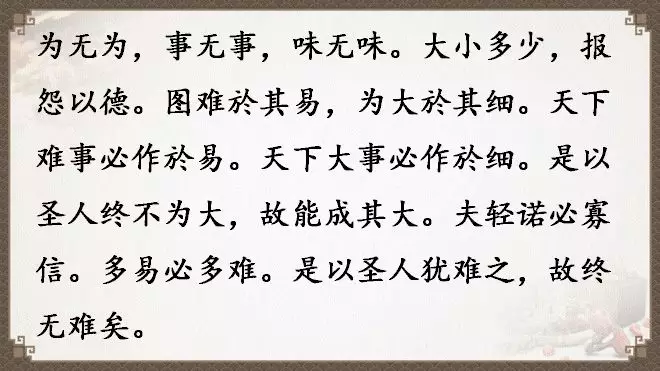 为无为，事无事，味无味。大小多少，报
怨以德。图难於其易，为大於其细。天下
难事必作於易。天下大事必作於细。是以
圣人终不为大，故能成其大。夫轻诺必寡
信。多易必多难。是以圣人犹难之，故终
无难矣。